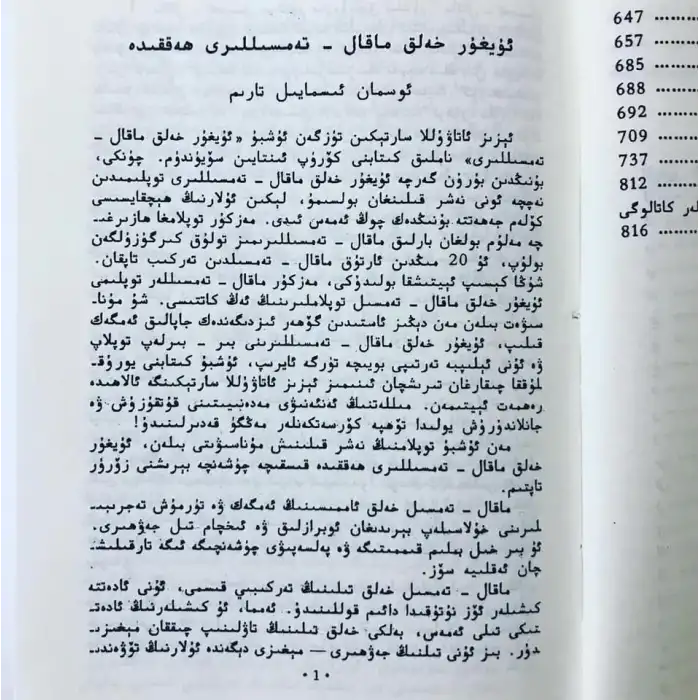 ئۇيغۇر خەلق ماقال ـ تەمسىللىرى ھەققىدە
ئوسمان ئىسمايىل تارىم
ئېزىز ئاتاۋۇللا سارتېكىن تۈزگەن ئۇشبۇ «ئۇيغۇر خەلق ماقال ـ
تەمسىللىرى» ناملىق كىتابنى كۆرۈپ ئىنتايىن سۆيۈندۈم. چۈنكى،
بۇنىڭدىن بۇرۇن گەرچە ئۇيغۇر خەلق ماقال ـ تەمسىللىرى توپلىمىدىن
نەچچە ئونى نەشر قىلىنغان بولسىمۇ، لېكىن ئۇلارنىڭ ھېچقايسىسى
كۆلەم جەھەتتە بۇنىڭدەك چوڭ ئەمەس ئىدى. مەزكۇر توپلامغا ھازىرغى‍ـ
چە مەلۇم بولغان بارلىق ماقال ـ تەمسىللىرىمىز تولۇق كىرگۈزۈلگەن
بولۇپ، ئۇ 20 مىڭدىن ئارتۇق ماقال ـ تەمسىلدىن تەركىب تاپقان.
شۇڭا كېسىپ ئېيتىشقا بولىدۇكى، مەزكۇر ماقال ـ تەمسىللەر توپلىمى
ئۇيغۇر خەلق ماقال ـ تەمسىل توپلاملىرىنىڭ ئەڭ كاتتىسى. شۇ مۇنا‍ـ
سىۋەت بىلەن مەن دېڭىز ئاستىدىن گۆھەر ئىزدىگەندەك جاپالىق ئەمگەك
قىلىپ، ئۇيغۇر خەلق ماقال ـ تەمسىللىرىنى بىر ـ بىرلەپ توپلاپ
ۋە ئۇنى ئېلىپبە تەرتىپى بويىچە تۈرگە ئايرىپ، ئۇشبۇ كىتابنى يورۇق‍ـ
لۇققا چىقارغان تىرىشچان ئىنىمىز ئېزىز ئاتاۋۇللا سارتېكىنگە ئالاھىدە
رەھمەت ئېيتىمەن. مىللەتنىڭ ئەنئەنىۋى مەدەنىيىتىنى قۇتقۇزۇش ۋە
جانلاندۇرۇش يولىدا تۆھپە كۆرسەتكەنلەر مەڭگۈ قەدىرلىنىدۇ!
مەن ئۇشبۇ توپلامنىڭ نەشر قىلىنىش مۇناسىۋىتى بىلەن، ئۇيغۇر
خەلق ماقال ـ تەمسىللىرى ھەققىدە قىسقىچە چۈشەنچە بېرىشنى زۆرۈر
تاپتىم.
ماقال ـ تەمسىل خەلق ئاممىسىنىڭ ئەمگەك ۋە تۇرمۇش تەجرىبى‍ـ
لىرىنى خۇلاسىلەپ بېرىدىغان ئوبرازلىق ۋە ئىخچام تىل جەۋھىرى.
ئۇ بىر خىل بىلىم قىممىتىگە ۋە پەلسەپىۋى چۈشەنچىگە ئىگە تارقىلىش‍ـ
چان ئەقلىيە سۆز.
ماقال ـ تەمسىل خەلق تىلىنىڭ تەركىبىي قىسمى، ئۇنى ئادەتتە
كىشىلەر ئۆز نۇتۇقىدا دائىم قوللىنىدۇ. ئەمما، ئۇ كىشىلەرنىڭ ئادەت‍ـ
تىكى تىلى ئەمەس، بەلكى خەلق تىلىنىڭ تاۋلىنىپ چىققان مېغىزى‍ـ
دۇر. بىز ئۇنى تىلنىڭ جەۋھىرى — مېغىزى دېگەندە ئۇلارنىڭ تۆۋەندى‍ـ
· 1 ·
647
657
685
688
692
709
737
812
لەر كاتالوگى
816